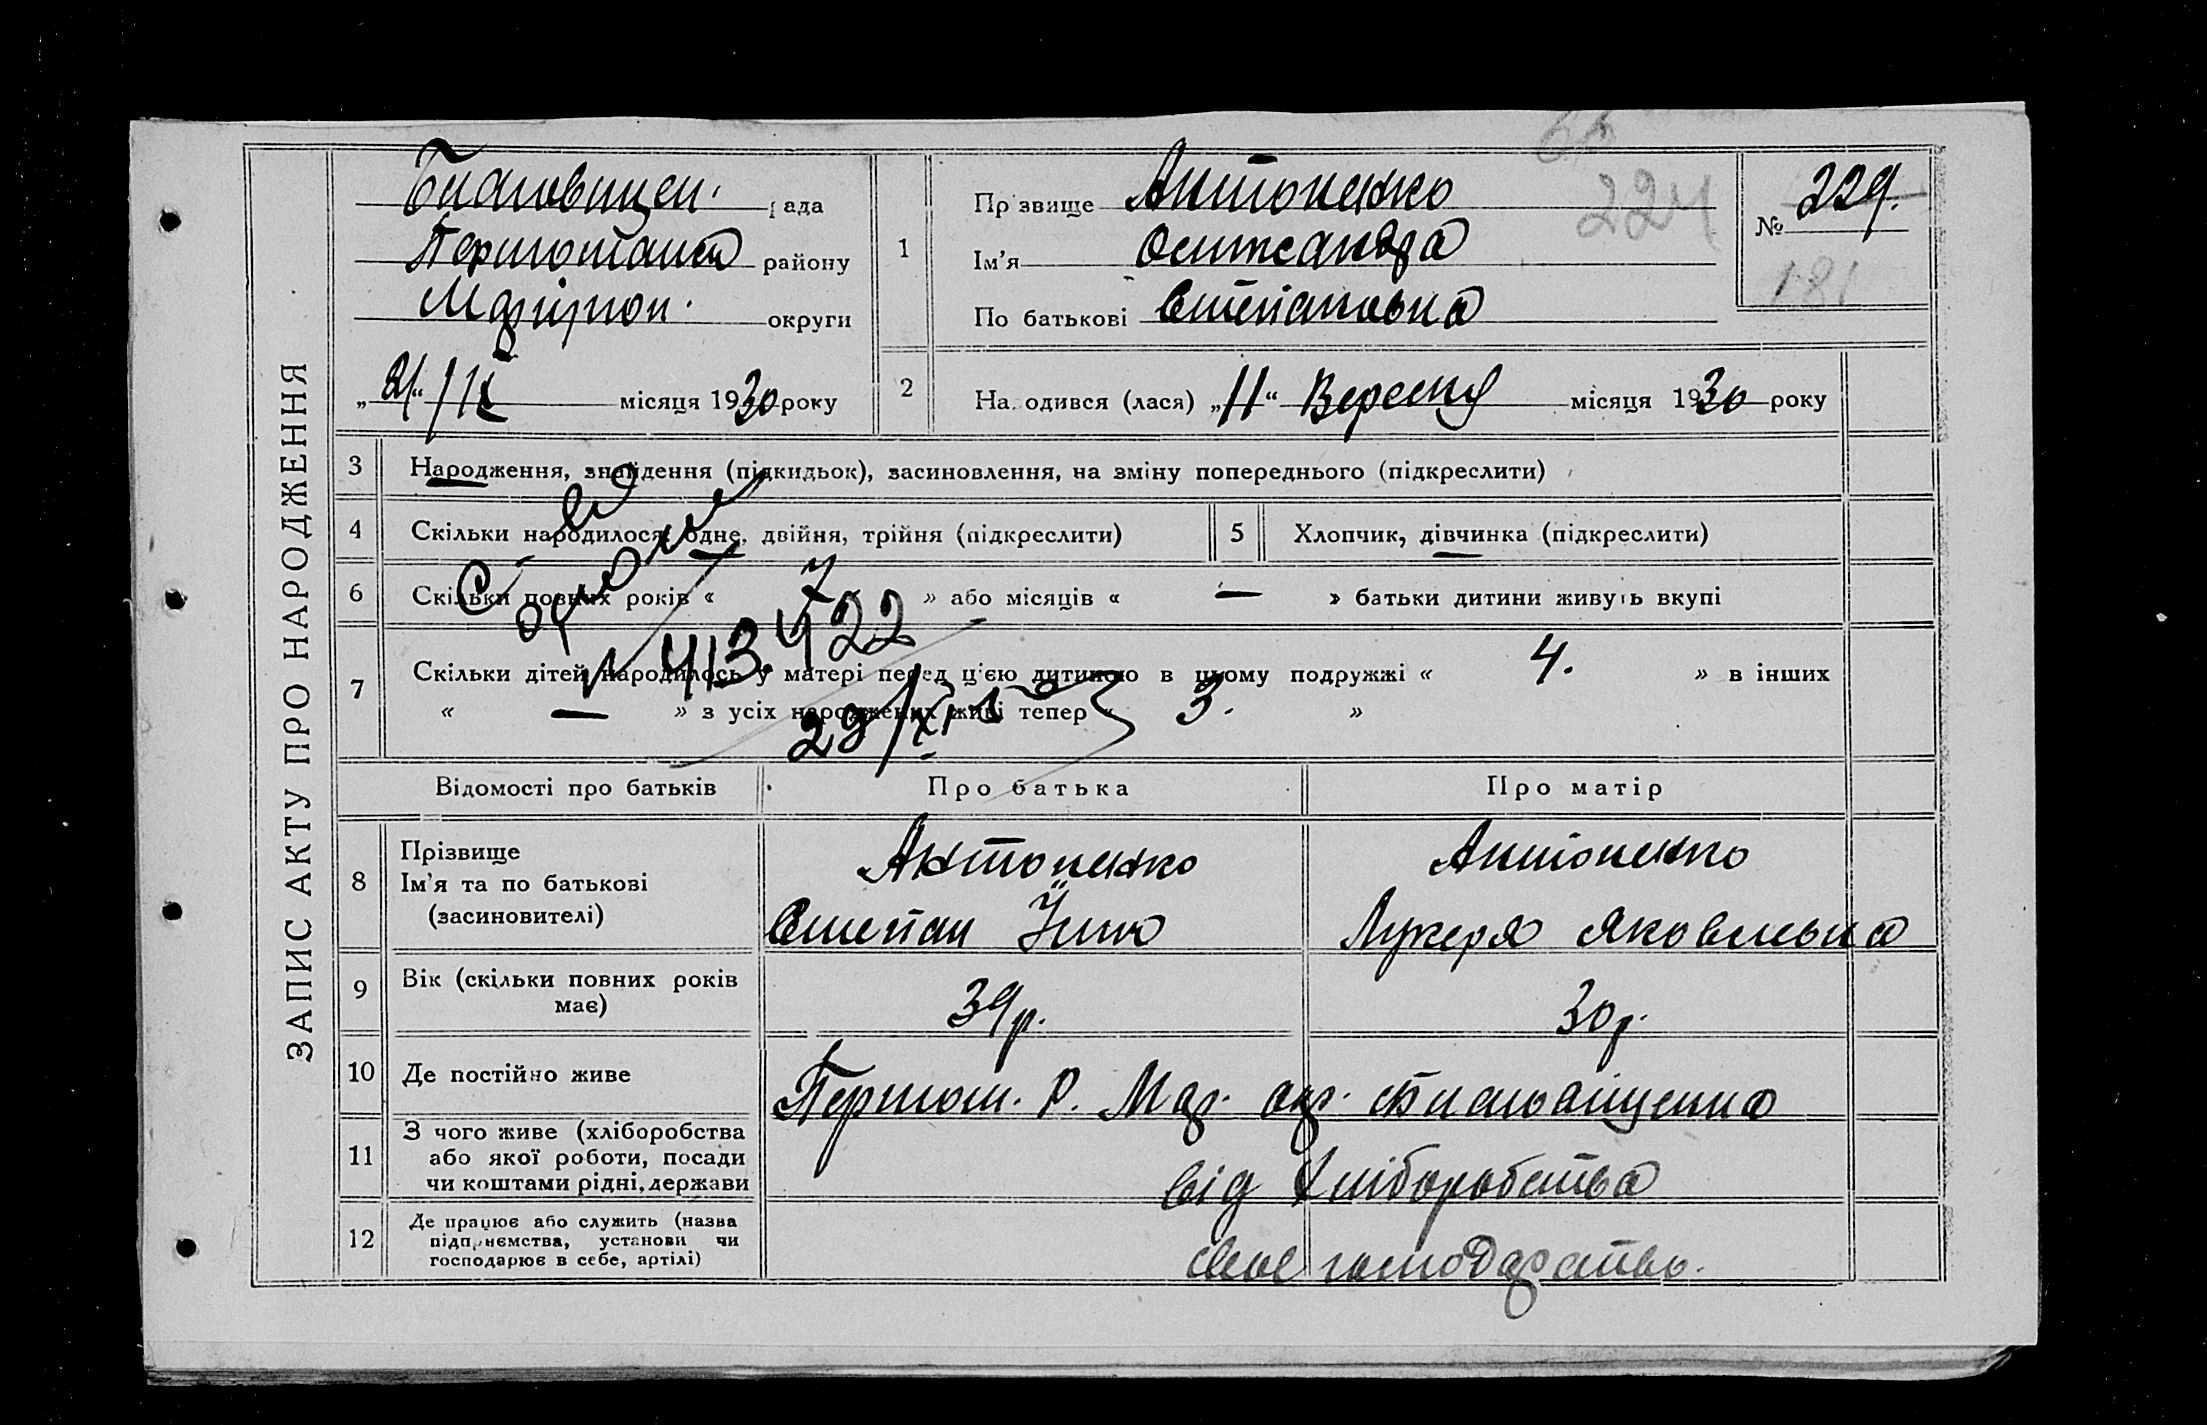 ЗАПИС АКТУ ПРО НАРОДЖЕННЯ
рада
району
Маріюпол. округи
„21“ /IX місяця 1930 року
1
Прізвище Антоненко
Ім'я Олександра
По батькові Степановна
224
№ 229.
181
2
Народився (лася) „11“ Вересня місяця 1930 року
3 Народження, знайдення (підкидьок), засиновлення, на зміну попереднього (підкреслити)
4 Скільки народилося: одне, двійня, трійня (підкреслити)
5 Хлопчик, дівчинка (підкреслити)
6 Скільки повних років « 7 » або місяців « — » батьки дитини живуть вкупі
7 Скільки дітей народилось у матері перед ц'єю дитиною в цьому подружжі « 4. » в інших
« — » з усіх народжених живі тепер « 3. »
N 413.422
Відомості про батьків
Про батька
Про матір
8 Прізвище
Ім'я та по батькові
(засиновителі)
Антоненко
Степан
Антоненко
Лукеря Яковлевна
9 Вік (скільки повних років
має)
39 р.
30 р.
10 Де постійно живе
Першот. Р. Мар. окр.
11 З чого живе (хліборобства
або якої роботи, посади
чи коштами рідні, держави
від Хліборобства
12 Де працює або служить (назва
підприємства, установи чи
господарює в себе, артілі)
своє господарство.